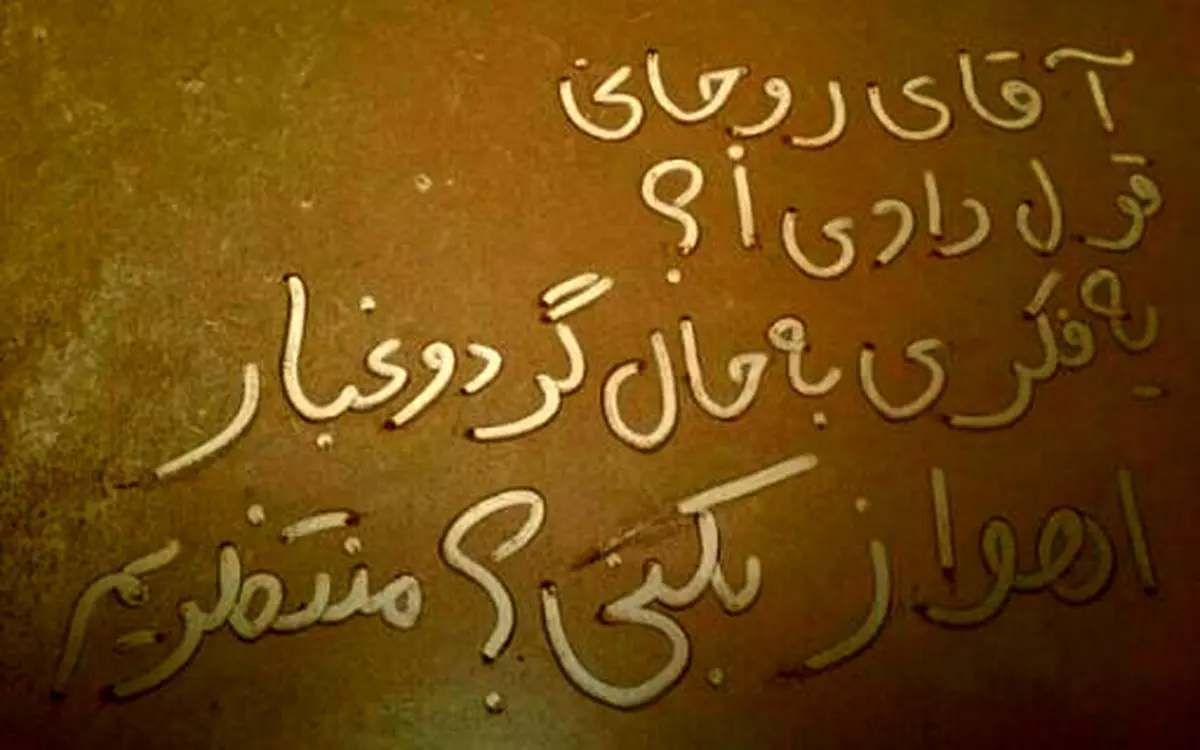 آقای روحانی
قول دادی ا؟
یه فکری به حال گرد و غبار
اهواز بکنی؟ منتظریم